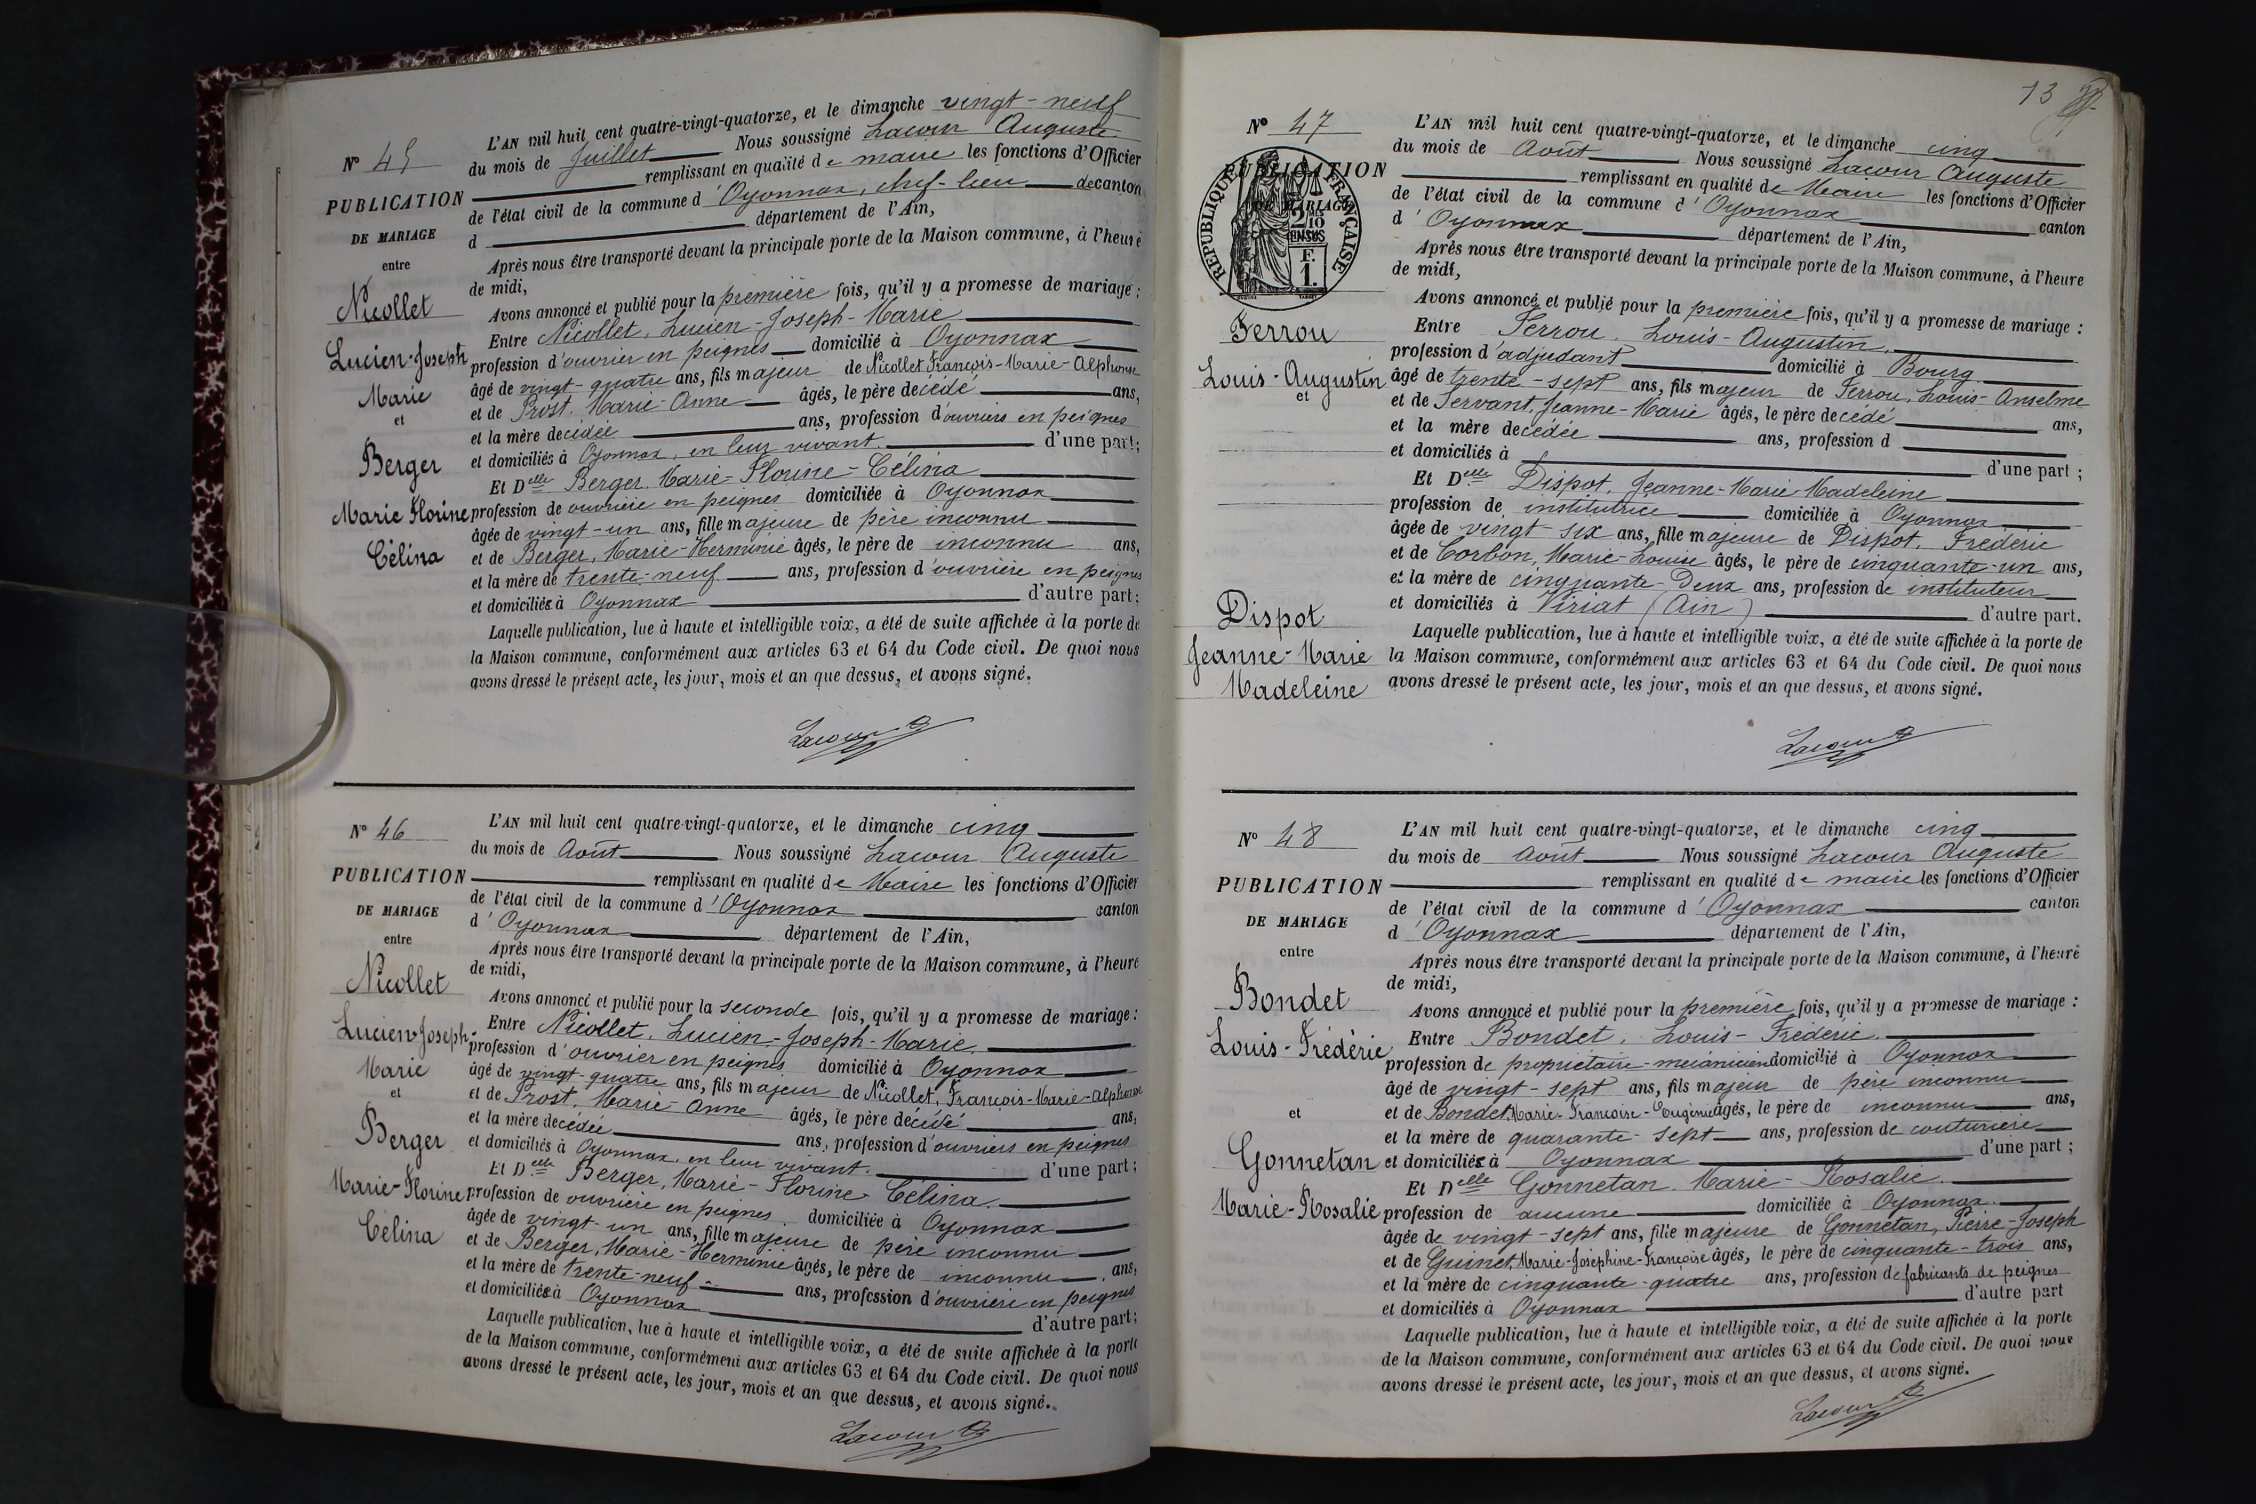 L'AN mil huit cent quatre-vingt-quatorze, et le dimanche vingt-neuf
N° 45
du mois de Juillet Nous soussigné Lacour Auguste
remplissant en qualité de maire les fonctions d'Officier
PUBLICATION
de l'état civil de la commune d'Oyonnax, chef-lieu de canton
DE MARIAGE
d département de l'Ain,
entre
Après nous être transporté devant la principale porte de la Maison commune, à l'heure
de midi,
Nicollet
Avons annoncé et publié pour la première fois, qu'il y a promesse de mariage :
Entre Nicollet, Lucien-Joseph-Marie
Lucien-Joseph
profession d'ouvrier en peignes domicilié à Oyonnax
Marie
âgé de vingt-quatre ans, fils majeur de Nicollet François-Marie-Alphonse
et
et de Prost, Marie-Anne âgés, le père decédé ans,
et la mère decédée ans, profession d'ouvriers en peignes
Berger
et domiciliés à Oyonnax, en leur vivant. d'une part;
Et Delle Berger, Marie-Florine-Célina
Marie Florine
profession de ouvrière en peignes domiciliée à Oyonnax
âgée de vingt-un ans, fille majeure de père inconnu
Célina
et de Berger, Marie-Herminie âgés, le père de inconnu ans,
et la mère de trente-neuf ans, profession d'ouvrière en peignes
et domiciliés à Oyonnax d'autre part;
Laquelle publication, lue à haute et intelligible voix, a été de suite affichée à la porte de
la Maison commune, conformément aux articles 63 et 64 du Code civil. De quoi nous
avons dressé le présent acte, les jour, mois et an que dessus, et avons signé.
Lacour A
N° 46
L'AN mil huit cent quatre-vingt-quatorze, et le dimanche cinq
du mois de Août Nous soussigné Lacour Auguste
PUBLICATION
remplissant en qualité de Maire les fonctions d'Officier
de l'état civil de la commune d'Oyonnax canton
DE MARIAGE
d'Oyonnax département de l'Ain,
entre
Après nous être transporté devant la principale porte de la Maison commune, à l'heure
de midi,
Nicollet
Avons annoncé et publié pour la seconde fois, qu'il y a promesse de mariage :
Lucien-Joseph-
Entre Nicollet, Lucien-Joseph-Marie.
profession d'ouvrier en peignes domicilié à Oyonnax
Marie
âgé de vingt-quatre ans, fils majeur de Nicollet, François-Marie-Alphonse
et
et de Prost, Marie-Anne âgés, le père décédé ans,
et la mère decédée ans, profession d'ouvriers en peignes
Berger
et domiciliés à Oyonnax, en leur vivant. d'une part;
Et Delle Berger, Marie-Florine-Célina.
Marie-Florine
profession de ouvrière en peignes domiciliée à Oyonnax
âgée de vingt-un ans, fille majeure de père inconnu
Célina
et de Berger, Marie-Herminie âgés, le père de inconnu ans,
et la mère de trente-neuf ans, profession d'ouvrière en peignes
et domiciliés à Oyonnax d'autre part;
Laquelle publication, lue à haute et intelligible voix, a été de suite affichée à la porte
de la Maison commune, conformément aux articles 63 et 64 du Code civil. De quoi nous
avons dressé le présent acte, les jour, mois et an que dessus, et avons signé.
Lacour A
13
N° 47
L'AN mil huit cent quatre-vingt-quatorze, et le dimanche cinq
du mois de Août Nous soussigné Lacour Auguste
PUBLICATION
remplissant en qualité de Maire les fonctions d'Officier
DE MARIAGE
de l'état civil de la commune d'Oyonnax canton
d'Oyonnax département de l'Ain,
RÉPUBLIQUE FRANÇAISE
2/10 EN SUS
F. 1.
Après nous être transporté devant la principale porte de la Maison commune, à l'heure
de midi,
Avons annoncé et publié pour la première fois, qu'il y a promesse de mariage :
Ferrou
Entre Ferrou, Louis-Augustin,
profession d'adjudant domicilié à Bourg
Louis-Augustin
âgé de trente-sept ans, fils majeur de Ferrou, Louis-Anselme
et
et de Servant, Jeanne-Marie âgés, le père decédé ans,
et la mère decédée ans, profession d
et domiciliés à d'une part ;
Et Delle Dispot, Jeanne-Marie-Madeleine
profession de institutrice domiciliée à Oyonnax
âgée de vingt-six ans, fille majeure de Dispot, Frédéric
et de Corbon, Marie-Louise âgés, le père de cinquante-un ans,
et la mère de cinquante-Deux ans, profession de instituteur
Dispot
et domiciliés à Viriat (Ain) d'autre part.
Laquelle publication, lue à haute et intelligible voix, a été de suite affichée à la porte de
Jeanne-Marie
la Maison commune, conformément aux articles 63 et 64 du Code civil. De quoi nous
Madeleine
avons dressé le présent acte, les jour, mois et an que dessus, et avons signé.
Lacour A
N° 48
L'AN mil huit cent quatre-vingt-quatorze, et le dimanche cinq
du mois de Août Nous soussigné Lacour Auguste
PUBLICATION
remplissant en qualité de maire les fonctions d'Officier
de l'état civil de la commune d'Oyonnax canton
DE MARIAGE
d'Oyonnax département de l'Ain,
entre
Après nous être transporté devant la principale porte de la Maison commune, à l'heure
de midi,
Bondet
Avons annoncé et publié pour la première fois, qu'il y a promesse de mariage :
Louis-Frédéric
Entre Bondet, Louis-Frédéric
profession de propriétaire-mécanicien domicilié à Oyonnax
âgé de vingt-sept ans, fils majeur de père inconnu
et
et de Bondet, Marie-Françoise-Eugénie âgés, le père de inconnu ans,
et la mère de quarante-sept ans, profession de couturière
Gonnetan
et domiciliés à Oyonnax d'une part ;
Et Delle Gonnetan, Marie-Rosalie.
Marie-Rosalie
profession de aucune domiciliée à Oyonnax.
âgée de vingt-sept ans, fille majeure de Gonnetan, Pierre-Joseph
et de Guinet, Marie-Joséphine-Françoise âgés, le père de cinquante-trois ans,
et la mère de cinquante-quatre ans, profession de fabricants de peignes
et domiciliés à Oyonnax d'autre part
Laquelle publication, lue à haute et intelligible voix, a été de suite affichée à la porte
de la Maison commune, conformément aux articles 63 et 64 du Code civil. De quoi nous
avons dressé le présent acte, les jour, mois et an que dessus, et avons signé.
Lacour A